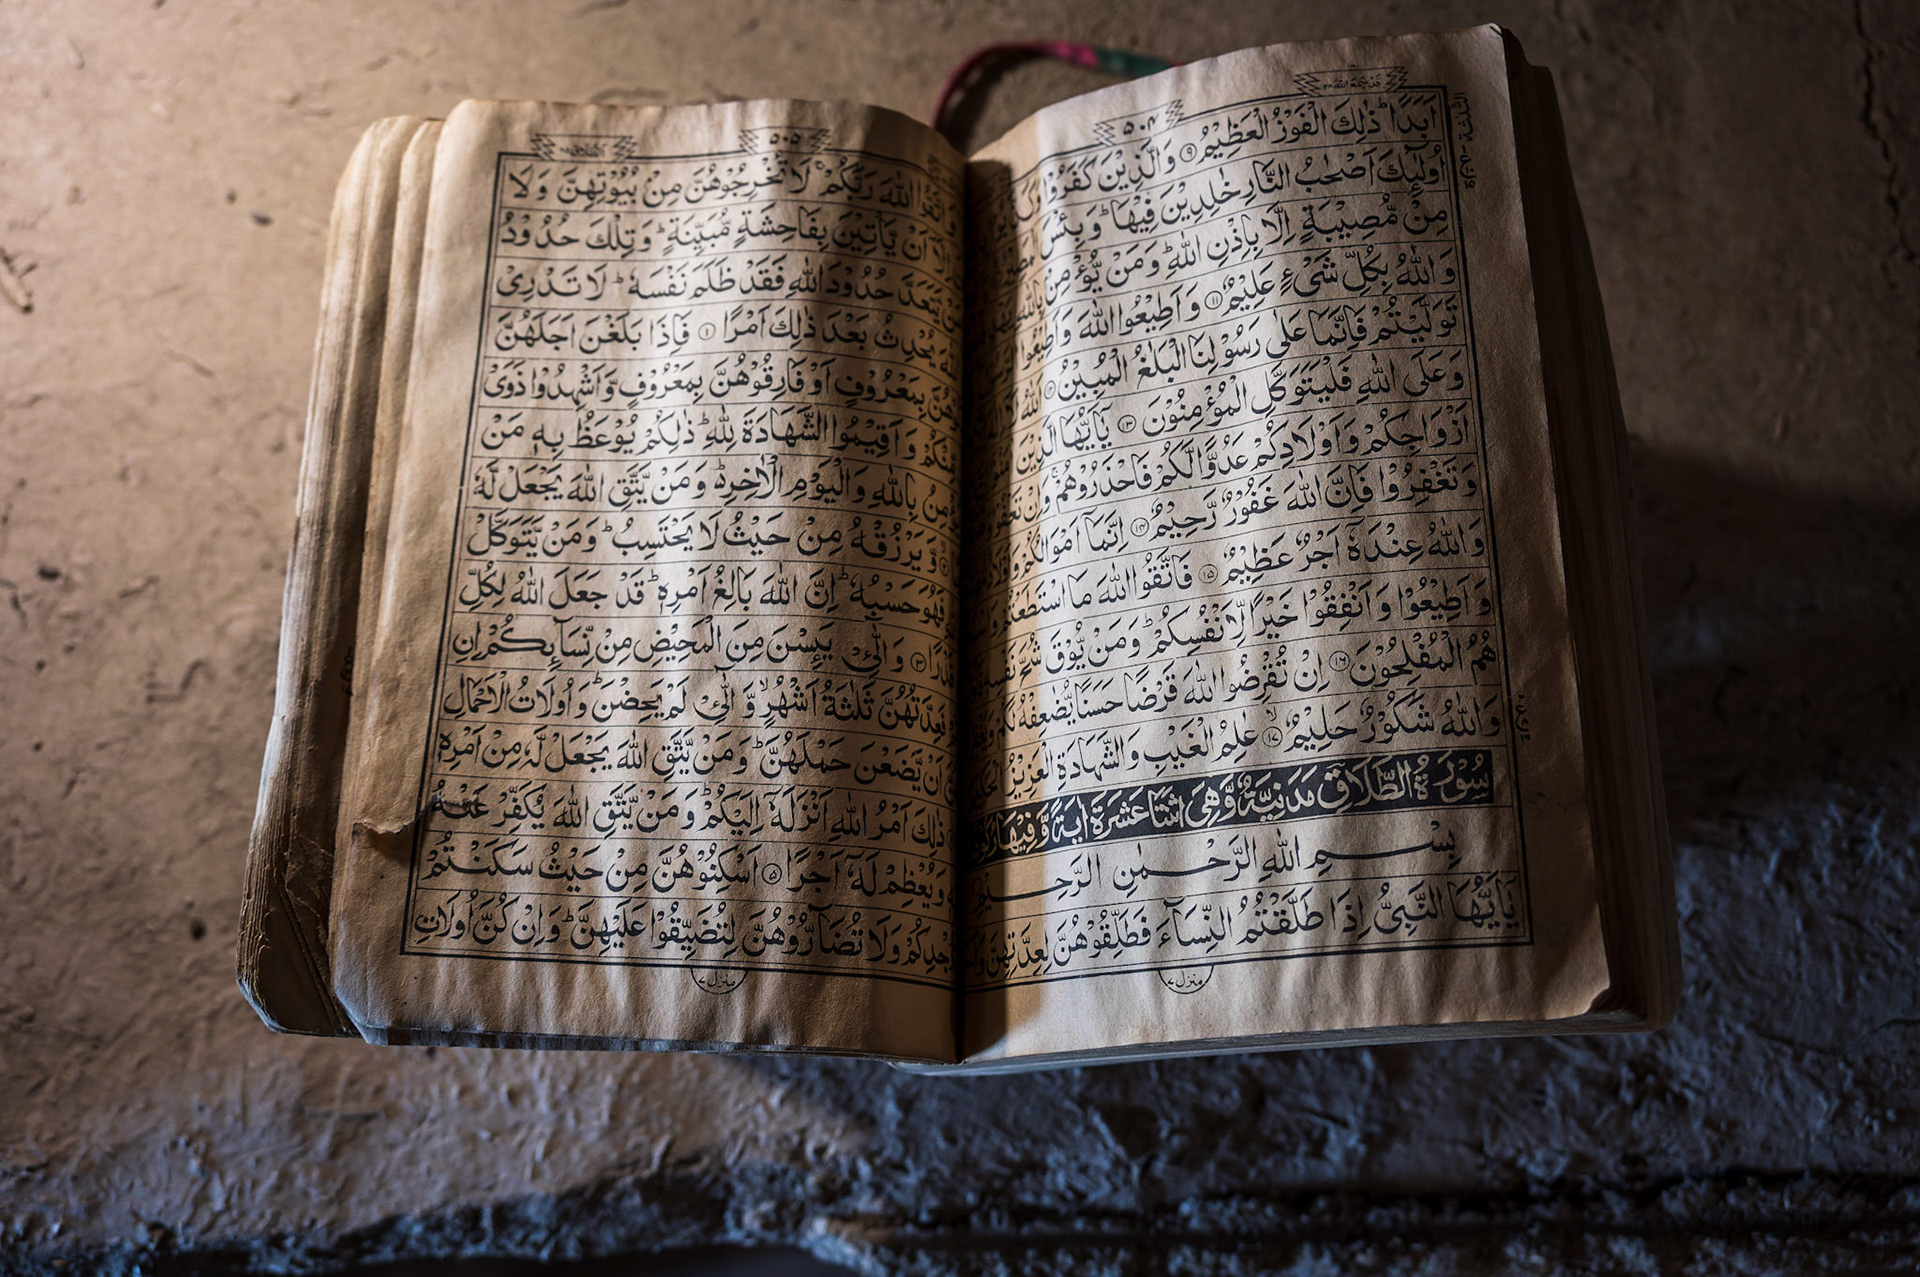 ۵۰۴
اَبَدًا ؕ ذٰلِكَ الْفَوْزُ الْعَظِيْمُ ۹ وَالَّذِيْنَ كَفَرُوْا
اُولٰٓئِكَ اَصْحٰبُ النَّارِ خٰلِدِيْنَ فِيْهَا ؕ وَبِئْسَ
مِنْ مُّصِيْبَةٍ اِلَّا بِاِذْنِ اللّٰهِ ؕ وَمَنْ يُّؤْمِنْ
وَاللّٰهُ بِكُلِّ شَیْءٍ عَلِيْمٌ ۱۱ وَاَطِيْعُوا اللّٰهَ وَاَطِيْعُوا
تَوَلَّيْتُمْ فَاِنَّمَا عَلٰى رَسُوْلِنَا الْبَلٰغُ الْمُبِيْنُ ۱۲ اَللّٰهُ لَاۤ
وَعَلَى اللّٰهِ فَلْيَتَوَكَّلِ الْمُؤْمِنُوْنَ ۱۳ يٰۤاَيُّهَا الَّذِيْنَ
اَزْوَاجِكُمْ وَاَوْلَادِكُمْ عَدُوًّا لَّكُمْ فَاحْذَرُوْهُمْ ۚ وَاِنْ تَعْفُوْا
وَتَغْفِرُوْا فَاِنَّ اللّٰهَ غَفُوْرٌ رَّحِيْمٌ ۱۴ اِنَّمَاۤ اَمْوَالُكُمْ وَاَوْلَادُكُمْ
وَاللّٰهُ عِنْدَهٗۤ اَجْرٌ عَظِيْمٌ ۱۵ فَاتَّقُوا اللّٰهَ مَا اسْتَطَعْتُمْ
وَاَطِيْعُوْا وَاَنْفِقُوْا خَيْرًا لِّاَنْفُسِكُمْ ؕ وَمَنْ يُّوْقَ شُحَّ نَفْسِهٖ
هُمُ الْمُفْلِحُوْنَ ۱۶ اِنْ تُقْرِضُوا اللّٰهَ قَرْضًا حَسَنًا يُّضٰعِفْهُ لَكُمْ
وَاللّٰهُ شَكُوْرٌ حَلِيْمٌ ۱۷ عٰلِمُ الْغَيْبِ وَالشَّهَادَةِ الْعَزِيْزُ
سُوْرَةُ الطَّلَاقِ مَدَنِيَّةٌ وَّهِىَ اثْنَتَا عَشَرَةَ اٰيَةً وَّفِيْهَا
بِسْمِ اللّٰهِ الرَّحْمٰنِ الرَّحِيْمِ
يٰۤاَيُّهَا النَّبِىُّ اِذَا طَلَّقْتُمُ النِّسَآءَ فَطَلِّقُوْهُنَّ لِعِدَّتِهِنَّ
منزل ۷
۵۰۵
اللّٰهَ رَبَّكُمْ ۚ لَا تُخْرِجُوْهُنَّ مِنْۢ بُيُوْتِهِنَّ وَلَا
اَنْ يَّاْتِيْنَ بِفَاحِشَةٍ مُّبَيِّنَةٍ ؕ وَتِلْكَ حُدُوْدُ
يَّتَعَدَّ حُدُوْدَ اللّٰهِ فَقَدْ ظَلَمَ نَفْسَهٗ ؕ لَا تَدْرِىْ
يُحْدِثُ بَعْدَ ذٰلِكَ اَمْرًا ۱ فَاِذَا بَلَغْنَ اَجَلَهُنَّ
بِمَعْرُوْفٍ اَوْ فَارِقُوْهُنَّ بِمَعْرُوْفٍ وَّاَشْهِدُوْا ذَوَىْ
وَاَقِيْمُوا الشَّهَادَةَ لِلّٰهِ ؕ ذٰلِكُمْ يُوْعَظُ بِهٖ مَنْ
بِاللّٰهِ وَالْيَوْمِ الْاٰخِرِ ؕ وَمَنْ يَّتَّقِ اللّٰهَ يَجْعَلْ لَّهٗ
وَّيَرْزُقْهُ مِنْ حَيْثُ لَا يَحْتَسِبُ ؕ وَمَنْ يَّتَوَكَّلْ
فَهُوَ حَسْبُهٗ ؕ اِنَّ اللّٰهَ بَالِغُ اَمْرِهٖ ؕ قَدْ جَعَلَ اللّٰهُ لِكُلِّ
قَدْرًا ۳ وَالّٰٓئِىْ يَئِسْنَ مِنَ الْمَحِيْضِ مِنْ نِّسَآئِكُمْ اِنِ
فَعِدَّتُهُنَّ ثَلٰثَةُ اَشْهُرٍ ۙ وَّالّٰٓئِىْ لَمْ يَحِضْنَ ؕ وَاُولَاتُ الْاَحْمَالِ
اَنْ يَّضَعْنَ حَمْلَهُنَّ ؕ وَمَنْ يَّتَّقِ اللّٰهَ يَجْعَلْ لَّهٗ مِنْ اَمْرِهٖ
ذٰلِكَ اَمْرُ اللّٰهِ اَنْزَلَهٗۤ اِلَيْكُمْ ؕ وَمَنْ يَّتَّقِ اللّٰهَ يُكَفِّرْ عَنْهُ
وَيُعْظِمْ لَهٗۤ اَجْرًا ۵ اَسْكِنُوْهُنَّ مِنْ حَيْثُ سَكَنْتُمْ
وُّجْدِكُمْ وَلَا تُضَآرُّوْهُنَّ لِتُضَيِّقُوْا عَلَيْهِنَّ ؕ وَاِنْ كُنَّ اُولَاتِ
منزل ۷